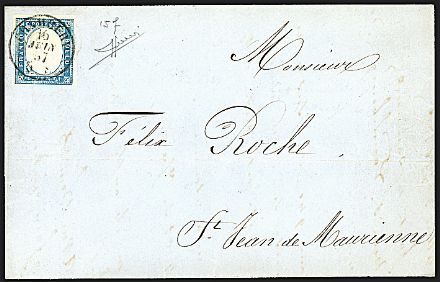 15f
16
JUIN
57
Monsieur
Félix Roche
St Jean de Maurienne